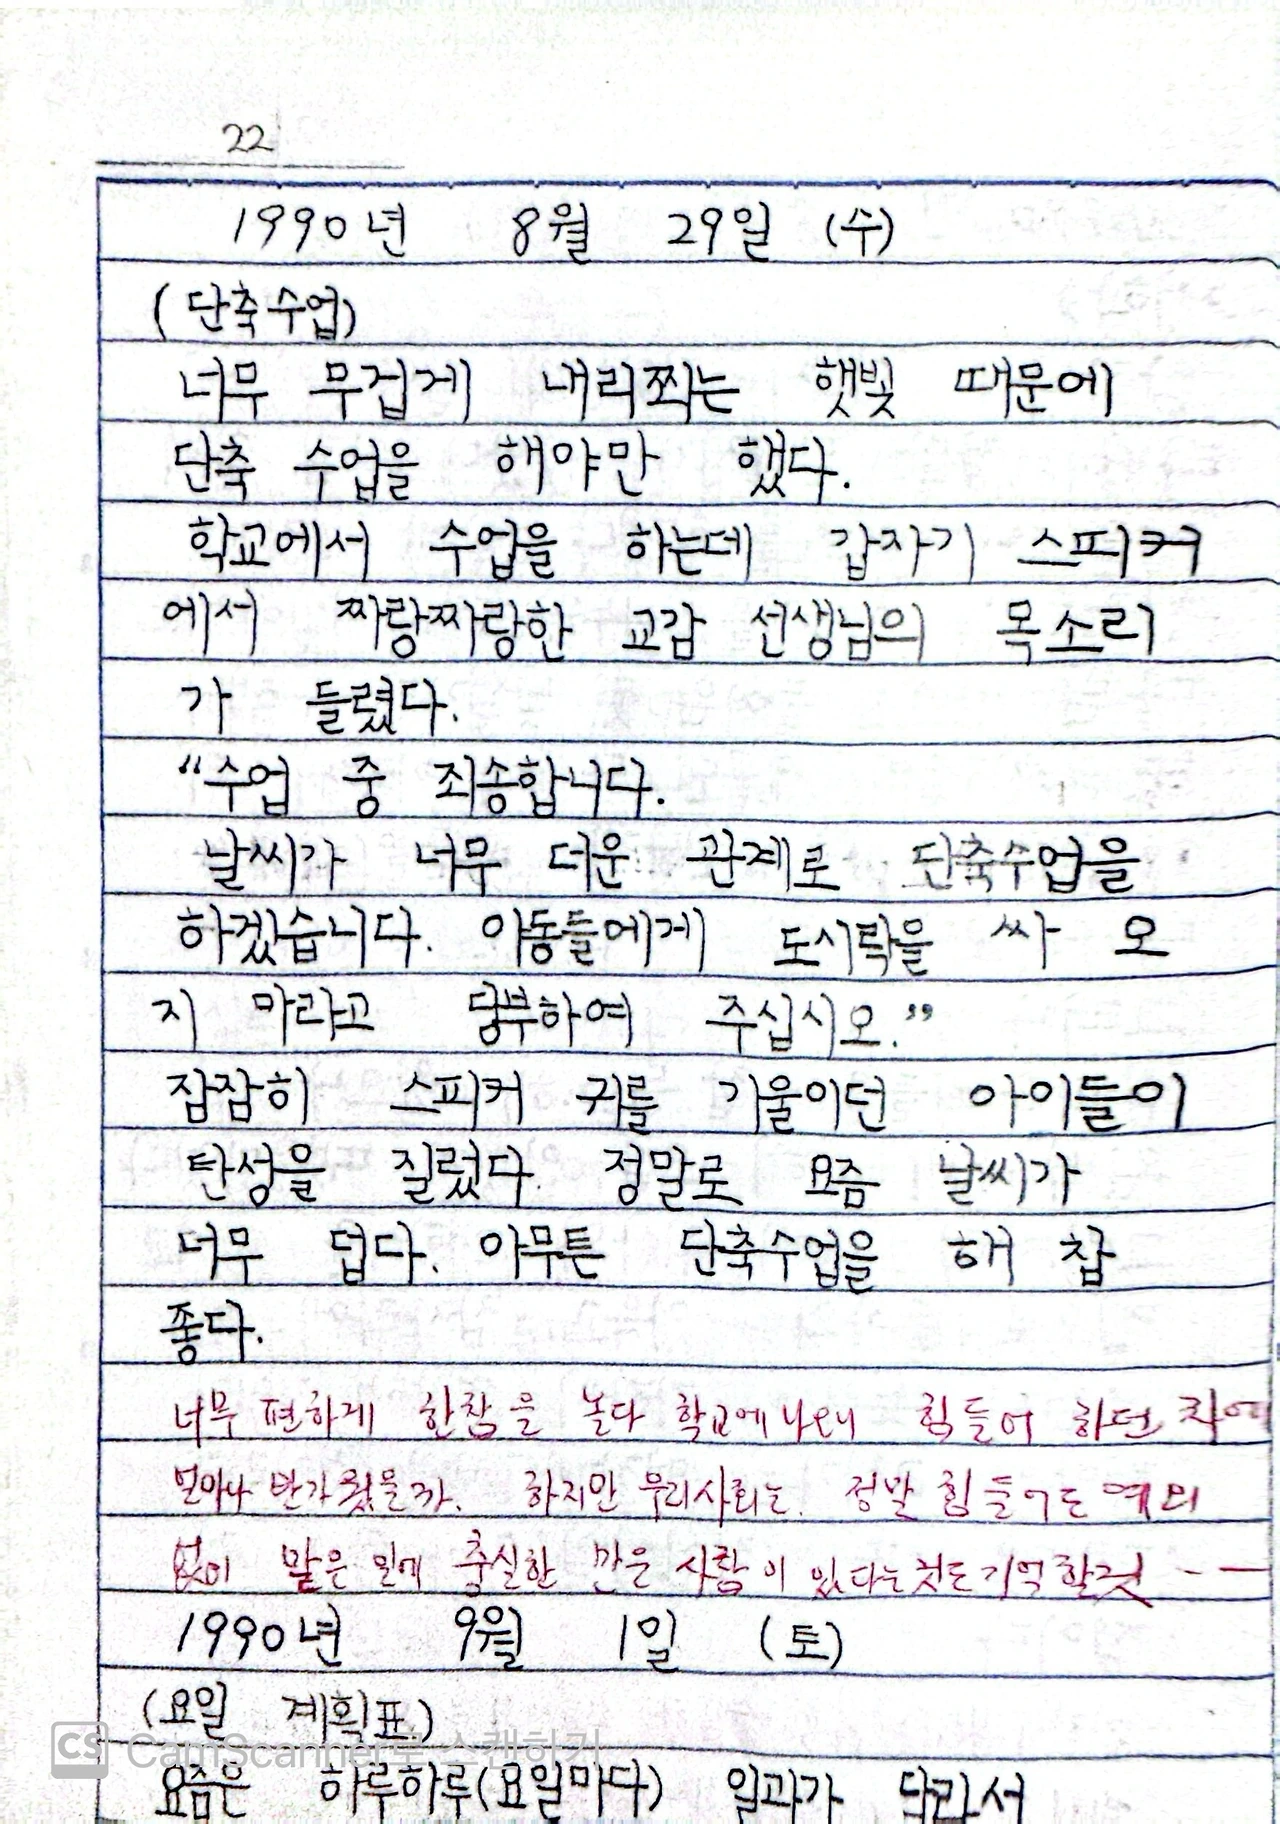 22
1990년 8월 29일 (수)
(단축수업)
너무 무겁게 내리쩍는 햇빛 때문에
단축 수업을 해야만 했다.
학교에서 수업을 하는데 갑자기 스피커
에서 짜랑짜랑한 교감 선생님의 목소리
가 들렸다.
“수업 중 죄송합니다.
날씨가 너무 더운 관계로 단축수업을
하겠습니다. 아동들에게 도시락을 싸 오
지 마라고 당부하여 주십시오.”
잠잠히 스피커 귀를 기울이던 아이들이
탄성을 질렀다. 정말로 요즘 날씨가
너무 덥다. 아무튼 단축수업을 해 참
좋다.
너무 편하게 한참을 놀다 학교에 나오니 힘들어 하던 차에
얼마나 반가웠을까. 하지만 우리사회는 정말 힘들어도
없이 맡은 일에 충실한 많은 사람이 있다는 것도 기억할것 - —
1990년 9월 1일 (토)
(요일 계획표)
CS CamScanner로 스캔하기
요즘은 하루하루(요일마다) 일과가 달라서